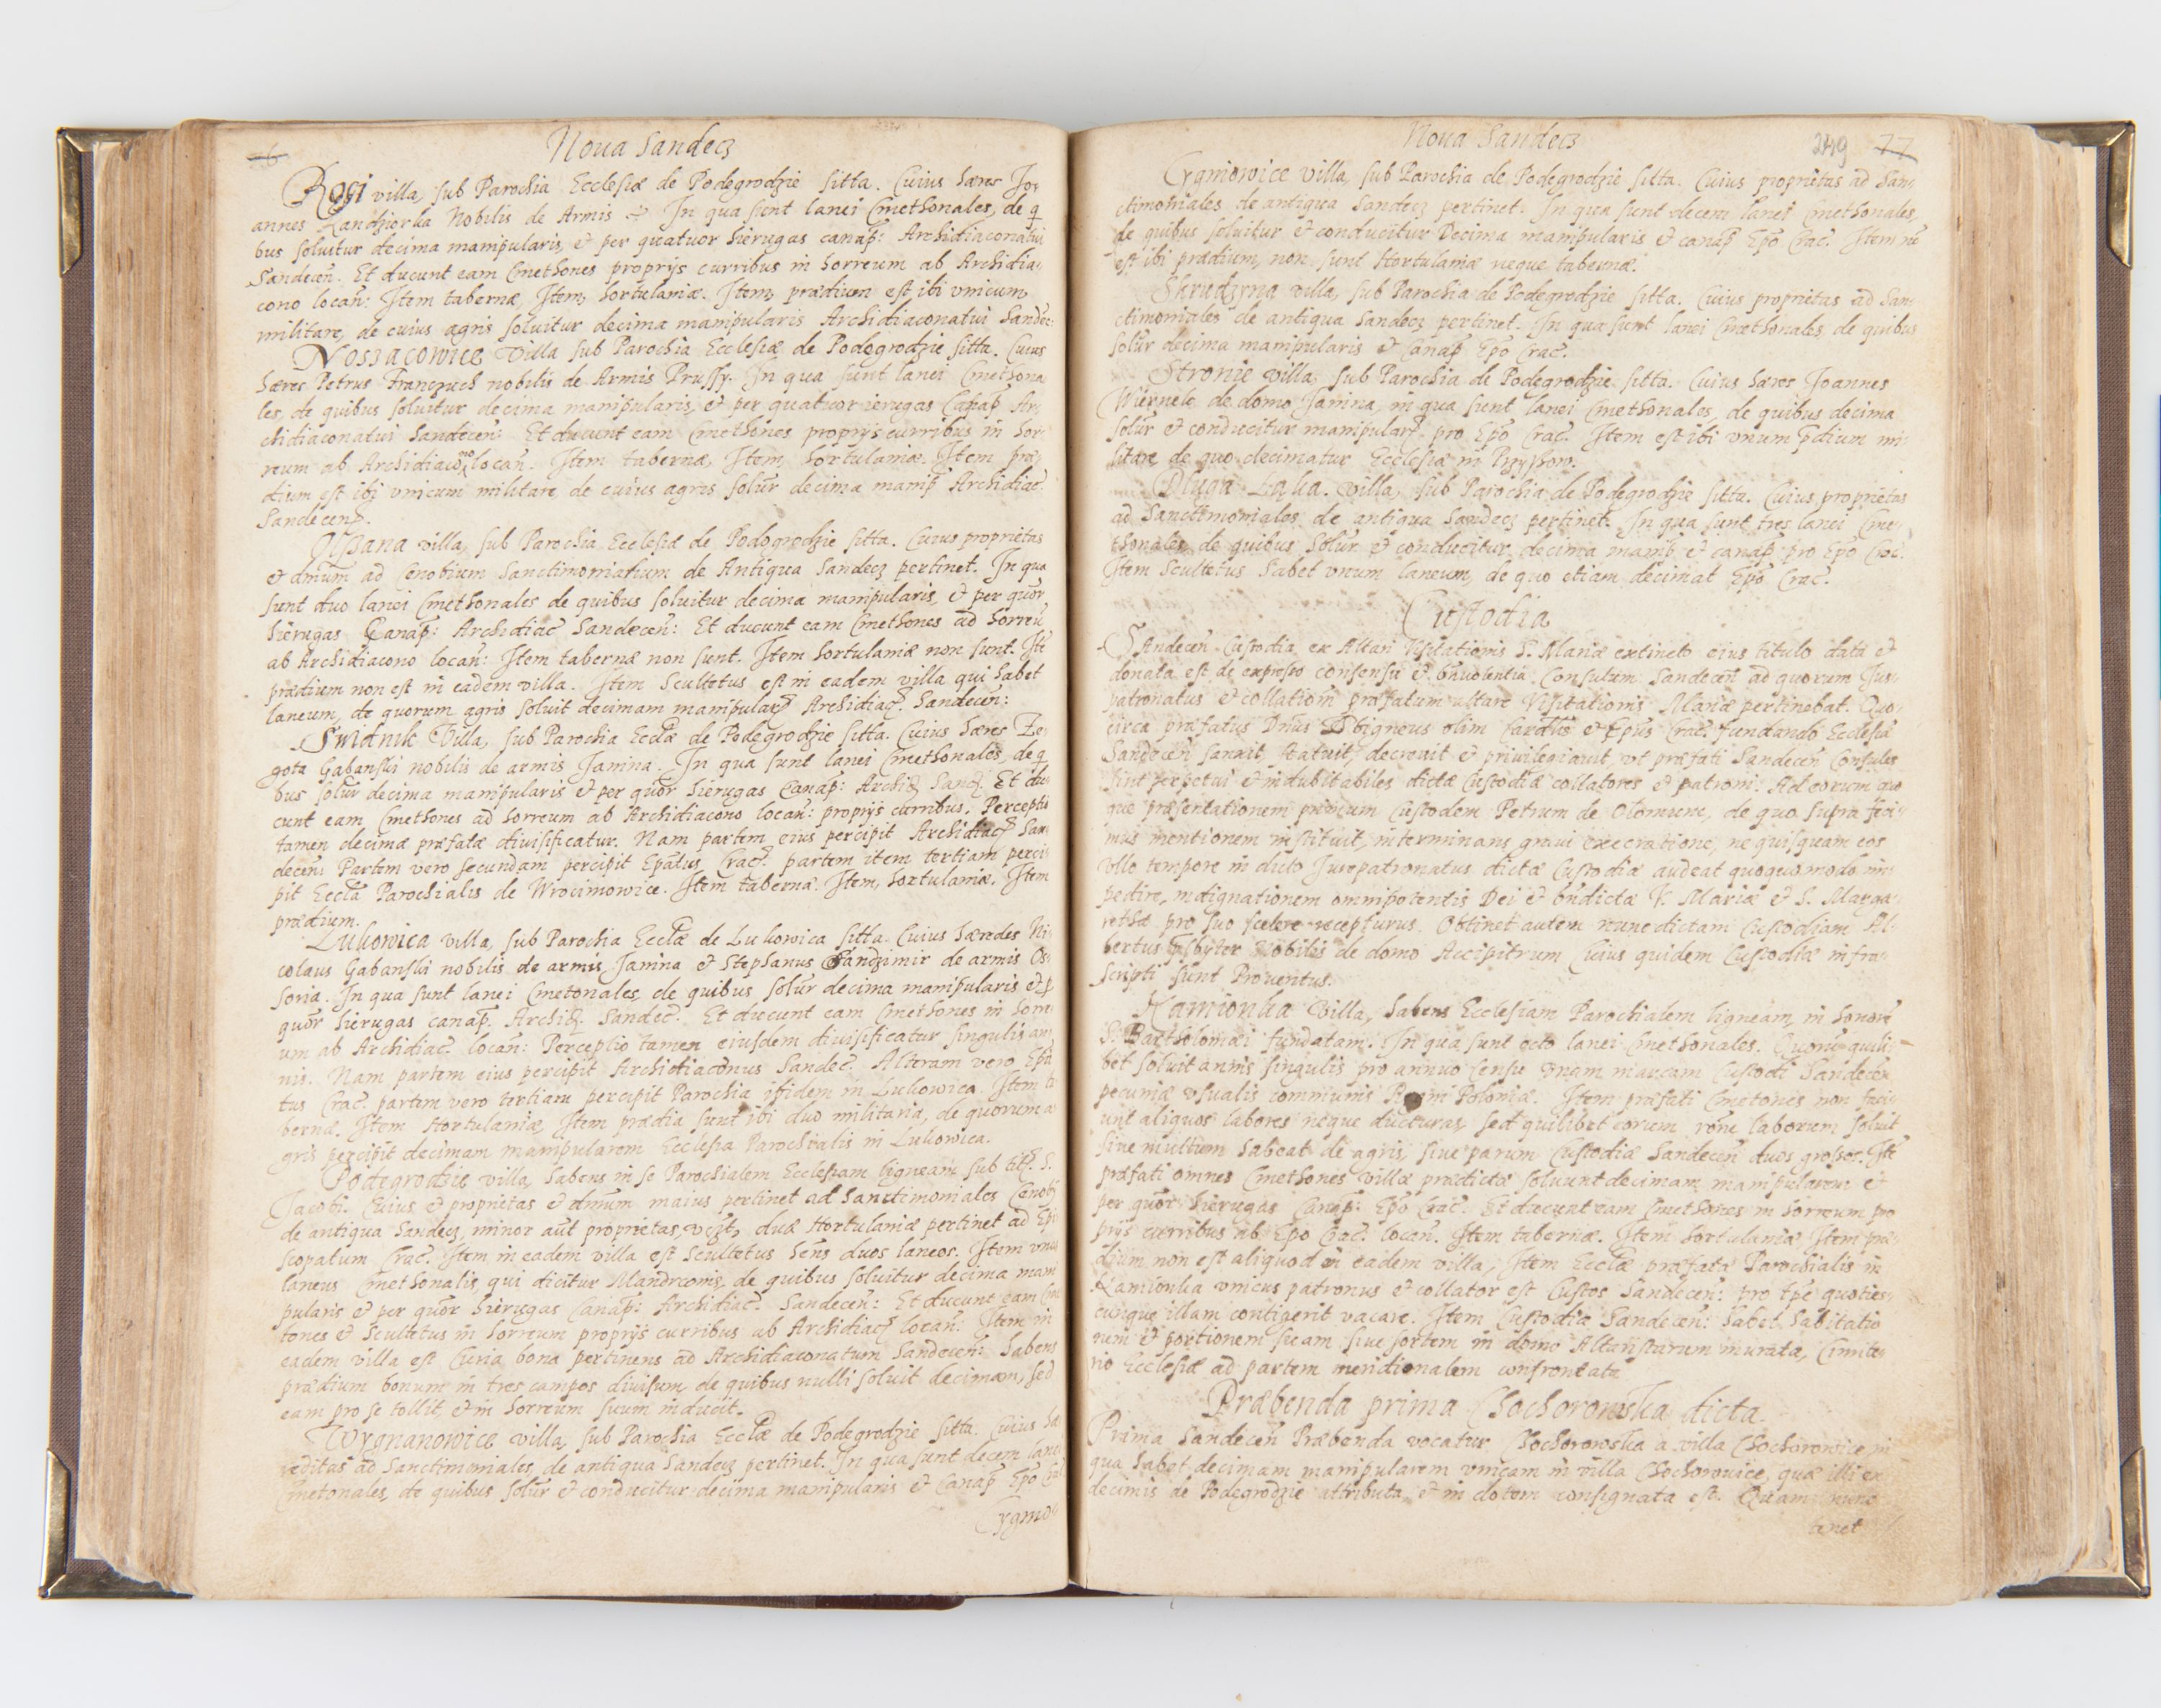 Noua Sandecz
Rogi villa, sub Parochia Ecclesiæ de Podegrodzie sitta. Cuius hæres Jo-
annes Nobilis de Armis In qua sunt lanei Cmethonales, de q
bus soluitur decima manipularis, & per quatuor hierugas canap: Archidiaconatui
Sandecen. Et ducunt eam Cmethones proprijs curribus in horreum ab Archidia-
cono locan: Item tabernæ, Item, hortulaniæ. Item, prædium est ibi vnicum
militare, de cuius agris soluitur decima manipularis Archidiaconatui Sandec:
Nosiacowice Villa sub Parochia Ecclesiæ de Podegrodzie sitta. Cuius
hæres Petrus Franczuch nobilis de Armis Prussy. In qua sunt lanei Cmethona
les, de quibus soluitur decima manipularis, & per quatuor ierugas Canap Ar-
chidiaconatui Sandecen: Et ducunt eam Cmethones proprijs curribus in hor
reum ab Archidiaco no locan. Item tabernæ, Item, hortulaniæ. Item præ-
dium est ibi vnicum militare de cuius agris solur decima manip Archidiac
Sandecen.
Olssana villa, sub Parochia Ecclesiæ de Podogrodzie sitta. Cuius proprietas
& dmum ad Cenobium Sanctimonialium de Antiqua Sandecz pertinet. In qua
sunt duo lanei Cmethonales de quibus soluitur decima manipularis, & per quor
hierugas Canap: Archidiac Sandecen: Et ducunt eam Cmethones ad horreu
ab Archidiacono locan: Item tabernæ non sunt. Item hortulaniæ non sunt. Ite
prædium non est in eadem villa. Item Scultetus est in eadem villa qui habet
laneum, de quorum agris soluit decimam manipular Archidiac. Sandecen:
Swidnik Villa, sub Parochia Ecclæ de Podegrodzie sitta. Cuius hæres Ze-
gota Gabanski nobilis de armis Janina. In qua sunt lanei Cmethonales, de q
bus solur decima manipularis & per quor hierugas Canap: Archid Sand. Et du
cunt eam Cmethones ad horreum ab Archidiacono locan: proprijs curribus. Perceptio
tamen decimæ præfatæ diuisificatur. Nam partem eius percipit Archidiac San-
decen: Partem vero secundam percipit Epatus Crac. partem item tertiam perci
pit Eccla Parochialis de Wrocimowice. Item taberna. Item, hortulaniæ. Item
prædium.
Lukowica villa, sub Parochia Ecclæ de Lukowica sitta. Cuius hæredes Ni-
colaus Gabanski nobilis de armis Janina & Stephanus Sandzimir de armis Os-
soria. In qua sunt lanei Cmetonales, de quibus solur decima manipularis & p
quor hierugas canap. Archid. Sandec. Et ducunt eam Cmethones in horre
um ab Archidiac. locan: Perceptio tamen eiusdem diuisificatur singulis an-
nis. Nam partem eius percipit Archidiaconus Sandec. Alteram vero Epa
tus Crac. partem vero tertiam percipit Parochia ibidem in Lukowica. Item ta
bernæ. Item Hortulaniæ, Item prædia sunt ibi duo militaria, de quorum a
gris percipit decimam manipularem Ecclesia Parochialis in Lukowica.
Podegrodzie villa, habens in se Parochialem Ecclesiam ligneam sub tit. S.
Jacobi. Cuius & proprietas & dmum maius pertinet ad Sanctimoniales Cenobij
de antiqua Sandecz, minor aut proprietas, vczt, duæ Hortulaniæ pertinet ad Epi
scopatum Crac. Item in eadem villa est Scultetus hens duos laneos. Item vnus
laneus Cmethonalis, qui dicitur Mandrconis, de quibus soluitur decima mani
pularis & per quor hierugas Canap: Archidiac. Sandecen: Et ducunt eam Cme
tones & Scultetus in horreum proprijs curribus ab Archidiac locan: Item in
eadem villa est Curia bona pertinens ad Archidiaconatum Sandecen: habens
prædium bonum in tres campos diuisum de quibus nulli soluit decimam, sed
eam pro se tollit, & in horreum suum inducit.
Wygnanowice villa, sub Parochia Ecclæ de Podegrodzie sitta. Cuius hæ
reditas ad Sanctimoniales, de antiqua Sandecz pertinet. In qua sunt decem lanei
Cmetonales, de quibus solur & conducitur decima manipularis & Canap Epo Crac
Cygmo
Noua Sandecz
249 77
Cygmowice villa, sub Parochia de Podegrodzie sitta. Cuius proprietas ad San-
ctimoniales de antiqua Sandecz pertinet. In qua sunt decem lanei Cmethonales,
de quibus soluitur & conducitur Decima manipularis & canap Epo Crac. Item no
est ibi prædium, non sunt Hortulaniæ neque tabernæ.
Skrudzyna villa, sub Parochia de Podegrodzie sitta. Cuius proprietas ad San-
ctimoniales de antiqua Sandecz pertinet. In qua sunt lanei Cmethonales de quibus
solur decima manipularis & Canap Epo Crac.
Stronie villa, sub Parochia de Podegrodzie sitta. Cuius hæres Joannes
Wiernek de domo Janina, in qua sunt lanei Cmethonales, de quibus decima
solur & conducitur manipular pro Epo Crac. Item est ibi vnum pdium mi-
litare de quo decimatur Ecclesiæ in Przyskow.
Dluga Laka. villa, sub Parochia de Podegrodzie sitta. Cuius proprietas
ad Sanctimoniales de antiqua Sandecz pertinet. In qua sunt tres lanei Cme-
thonales de quibus solur & conducitur decima manip & canap pro Epo Crac.
Item Scultetus habet vnum laneum, de quo etiam decimat Epo Crac.
Custodia
SAndecen Custodia ex Altari Visitationis S. Mariæ extincto eius titulo data &
donata est de expresso consensu & bniuolentia Consulum Sandecen ad quorum Jus-
patronatus & collation præfatum altare Visitationis Mariæ pertinebat. Quo-
circa præfatus Dnus Sbigneus olim Cardlis & Epus Crac. fundando Ecclesia
Sandecen sanxit, statuit, decreuit & priuilegiauit, vt præfati Sandecen Consules
sint perpetui & indubitabiles dictæ Custodiæ collatores & patroni. Ad eorum quo
que præsentationem primum Custodem Petrum de Olomunc, de quo supra feci-
mus mentionem instituit, interminans graui execratione, ne quisquam eos
vllo tempore in dicto Jurepatronatus dictæ Custodiæ audeat quoquomodo im-
pedire, indignationem omnipotentis Dei & bndictæ V. Mariæ & S. Marga-
rethæ pro suo scelere recepturus. Obtinet autem nunc dictam Custodiam Al-
bertus psbyter Nobilis de domo Accipitrum Cuius quidem Custodiæ infra-
scripti sunt Prouentus.
Kamionka Villa, habens Ecclesiam Parochialem ligneam, in honore
S. Bartholomæi fundatam. In qua sunt octo lanei Cmethonales. Quoru quili-
bet soluit annis singulis pro annuo censu vnam marcam Custodi Sandecen
pecuniæ vsualis communis Regni Poloniæ. Item præfati Cmetones non faci-
unt aliquos labores neque ducturas, sed quilibet eorum rone laborum soluit
siue multum habeat de agris, siue parum Custodiæ Sandecen duos grossos. Ite
præfati omnes Cmethones villæ prædictæ soluunt decimam manipularem &
per quor hierugas Canap: Epo Crac. Et ducunt eam Cmethones in horreum pro
prijs curribus ab Epo Crac. locan. Item tabernæ. Item hortulaniæ Item præ-
dium non est aliquod in eadem villa, Item Ecclæ præfatæ Parochialis in
Kamionka vnicus patronus & collator est Custos Sandecen: pro tpe quoties-
cunque illam contigerit vacare. Item Custodia Sandecen: habet habitatio
nem & portionem suam siue sortem in domo Altaristarum murata, Cimite-
rio Ecclesiæ ad partem meridionalem confrontata
Præbenda prima Chochorowska dicta.
Prima Sandecen Præbenda vocatur Chochorowska a villa Chochorowice in
qua habet decimam manipularem vnicam in villa Chochorowice, quæ illi ex
decimis de Podegrodzie attributa, & in dotem consignata est. Quam nunc
tenet